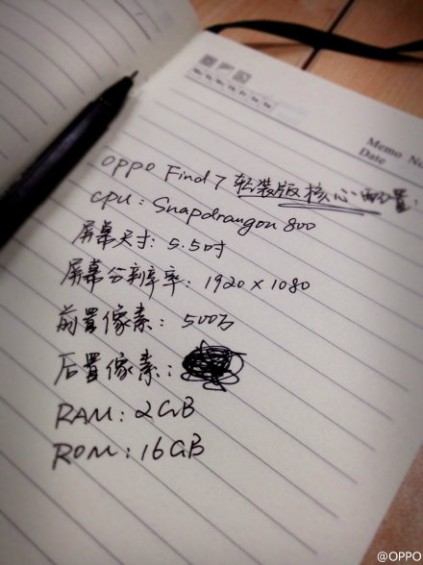 Memo No
Date
OPPO Find 7 轻装版核心配置:
CPU: Snapdraugon 800
屏幕尺寸: 5.5吋
屏幕分辨率: 1920×1080
前置像素: 500万
后置像素:
RAM: 2GB
ROM: 16GB
@OPPO